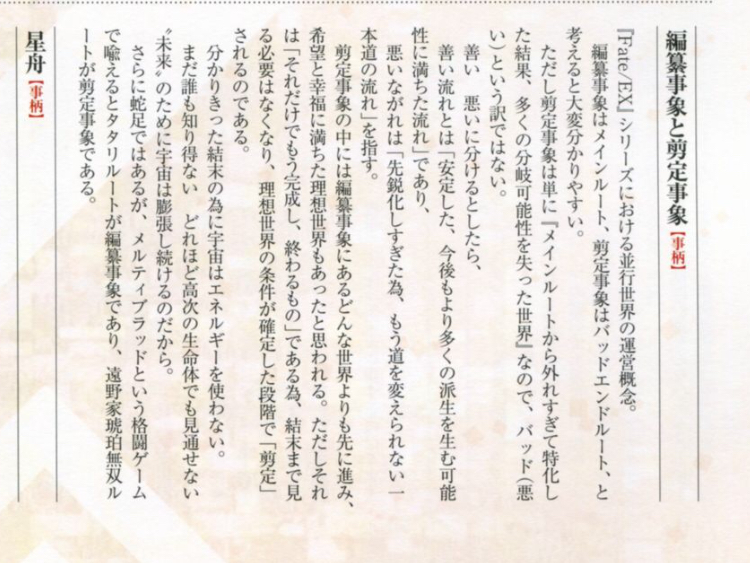 編纂事象と剪定事象【事柄】
『Fate/EX』シリーズにおける並行世界の運営概念。
編纂事象はメインルート、剪定事象はバッドエンドルート、と
考えると大変分かりやすい。
ただし剪定事象は単に『メインルートから外れすぎて特化し
た結果、多くの分岐可能性を失った世界』なので、バッド（悪
い）という訳ではない。
善い　悪いに分けるとしたら、
善い流れとは「安定した、今後もより多くの派生を生む可能
性に満ちた流れ」であり、
悪いながれは「先鋭化しすぎた為、もう道を変えられない一
本道の流れ」を指す。
剪定事象の中には編纂事象にあるどんな世界よりも先に進み、
希望と幸福に満ちた理想世界もあったと思われる。ただしそれ
は「それだけでもう完成し、終わるもの」である為、結末まで見
る必要はなくなり、理想世界の条件が確定した段階で「剪定」
されるのである。
分かりきった結末の為に宇宙はエネルギーを使わない。
まだ誰も知り得ない　どれほど高次の生命体でも見通せない
〝未来〟のために宇宙は膨張し続けるのだから。
さらに蛇足ではあるが、メルティブラッドという格闘ゲーム
で喩えるとタタリルートが編纂事象であり、遠野家琥珀無双ル
ートが剪定事象である。
星舟【事柄】